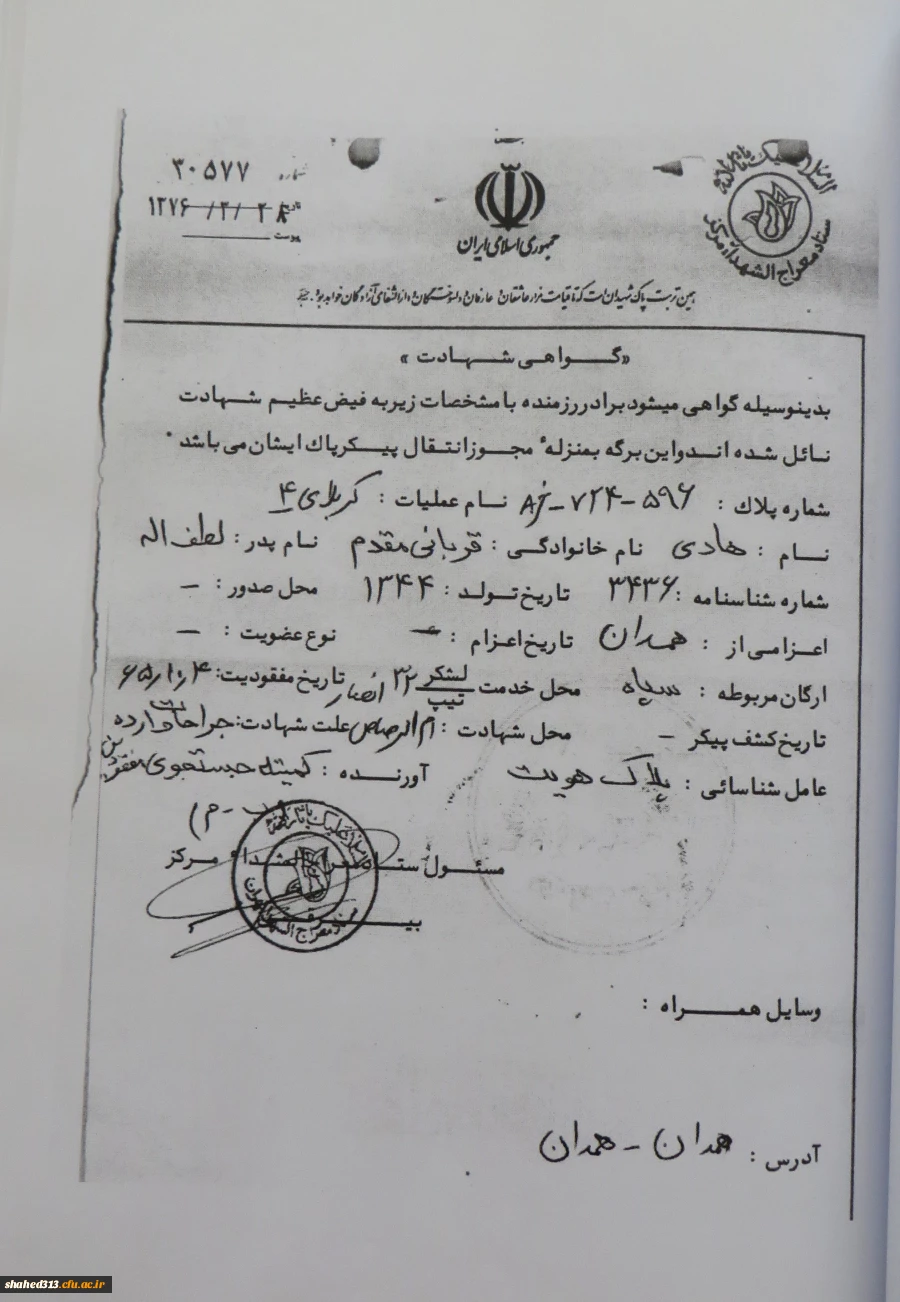 السلام علیک یا ثارالله
ستاد معراج الشهداء مرکز
جمهوری اسلامی ایران
شماره ۲۰۵۷۷
تاریخ ۱۳۷۶/۲/۲۸
پیوست
همین تربت پاک شهیدان است که تا قیامت مزار عاشقان و عارفان و دلسوختگان و دارالشفای آزادگان خواهد بود.
«گواهی شهادت»
بدینوسیله گواهی میشود برادر رزمنده با مشخصات زیر به فیض عظیم شهادت
نائل شده اند و این برگه بمنزله مجوز انتقال پیکر پاك ایشان می باشد
شماره پلاك : ۵۹۶-۷۲۴- نام عملیات : کربلای ۴
نام : هادی نام خانوادگی : قربانی مقدم نام پدر : لطف اله
شماره شناسنامه : ۳۴۳۶ تاریخ تولد : ۱۳۴۴ محل صدور : –
اعزامی از : همدان تاریخ اعزام : – نوع عضویت : –
ارگان مربوطه : سپاه محل خدمت لشکر تیپ ۳۲ انصار تاریخ مفقودیت : ۶۵/۱۰/۴
تاریخ کشف پیکر – محل شهادت : ام الرصاص علت شهادت : جراحات وارده
عامل شناسائی : پلاک هویت آورنده : کمیته جستجوی مفقودین
مسئول ستاد معراج الشهداء مرکز
وسایل همراه :
آدرس : همدان – همدان
shahed313.cfu.ac.ir